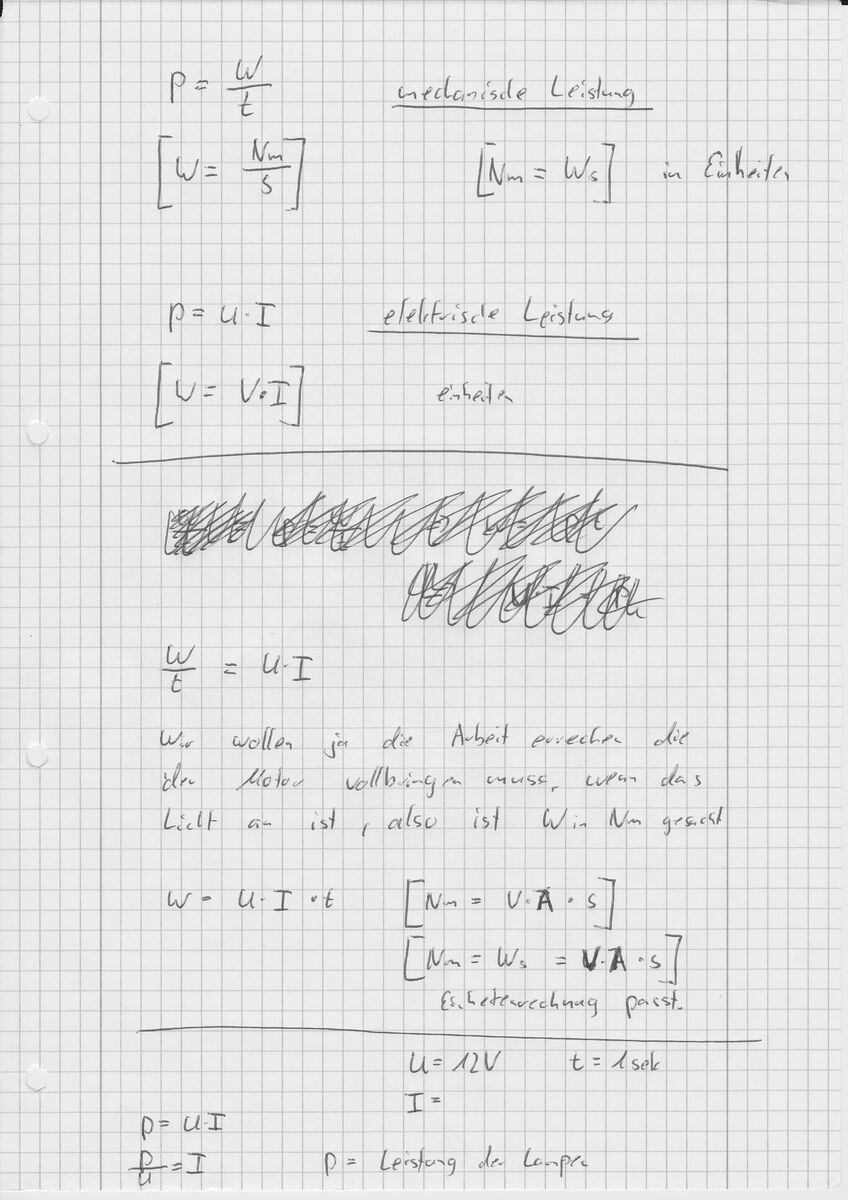 P = W/t mechanische Leistung
[W = Nm/s] [Nm = Ws] in Einheiten
P = U·I elektrische Leistung
[W = V·I] einheiten
W/t = U·I
Wir wollen ja die Arbeit errechen die
der Motor vollbringen muss, wenn das
Licht an ist, also ist W in Nm gesucht
W = U·I·t [Nm = V·A·s]
[Nm = Ws = V·A·s]
Einheitenrechnung passt.
U = 12V t = 1sek
I =
P = U·I
P/U = I P = Leistung der Lampen